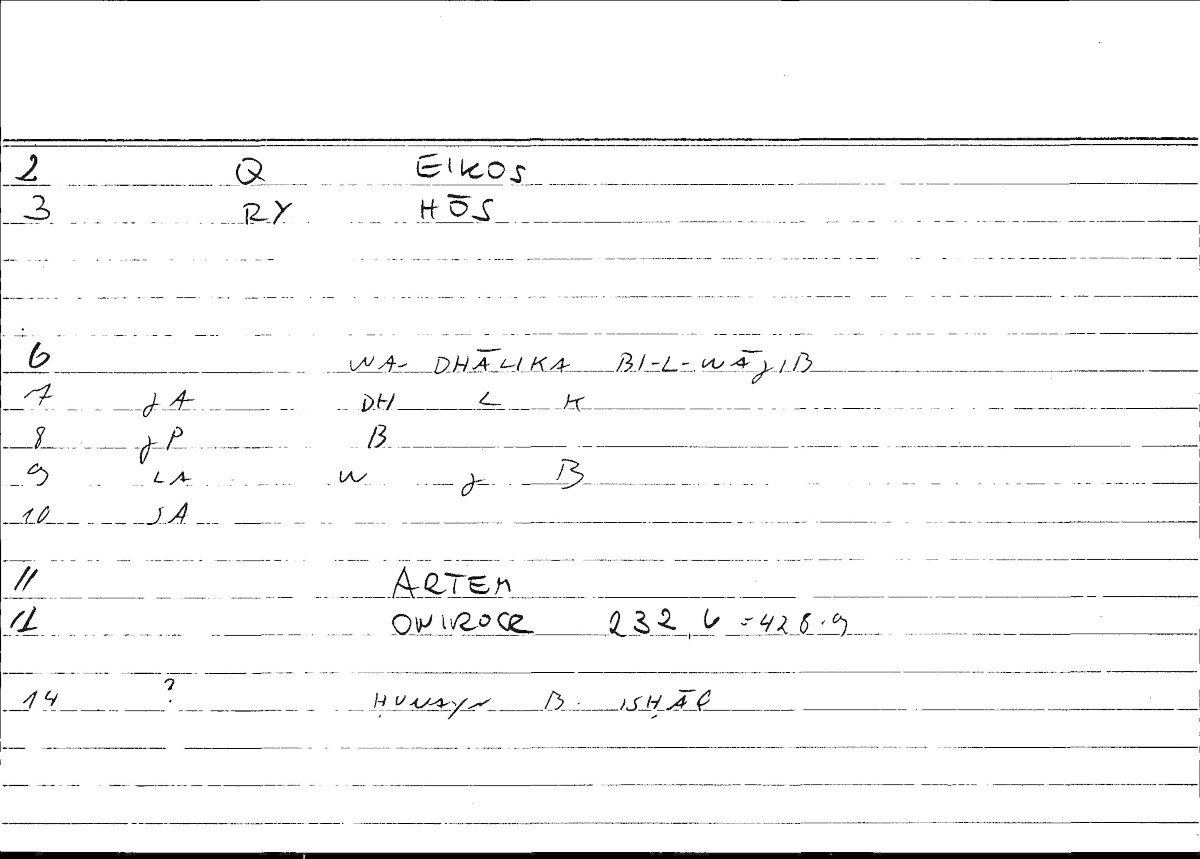 2 Q EIKOS
3 RY HŌS
6 WA- DHĀLIKA BI-L-WĀJIB
7 JA DH L K
8 JP B
9 LA W J B
10 SA
11 ARTEM
12 ONIROCR 232,6 = 428.9
14 ? ḤUNAYN B. ISḤĀQ